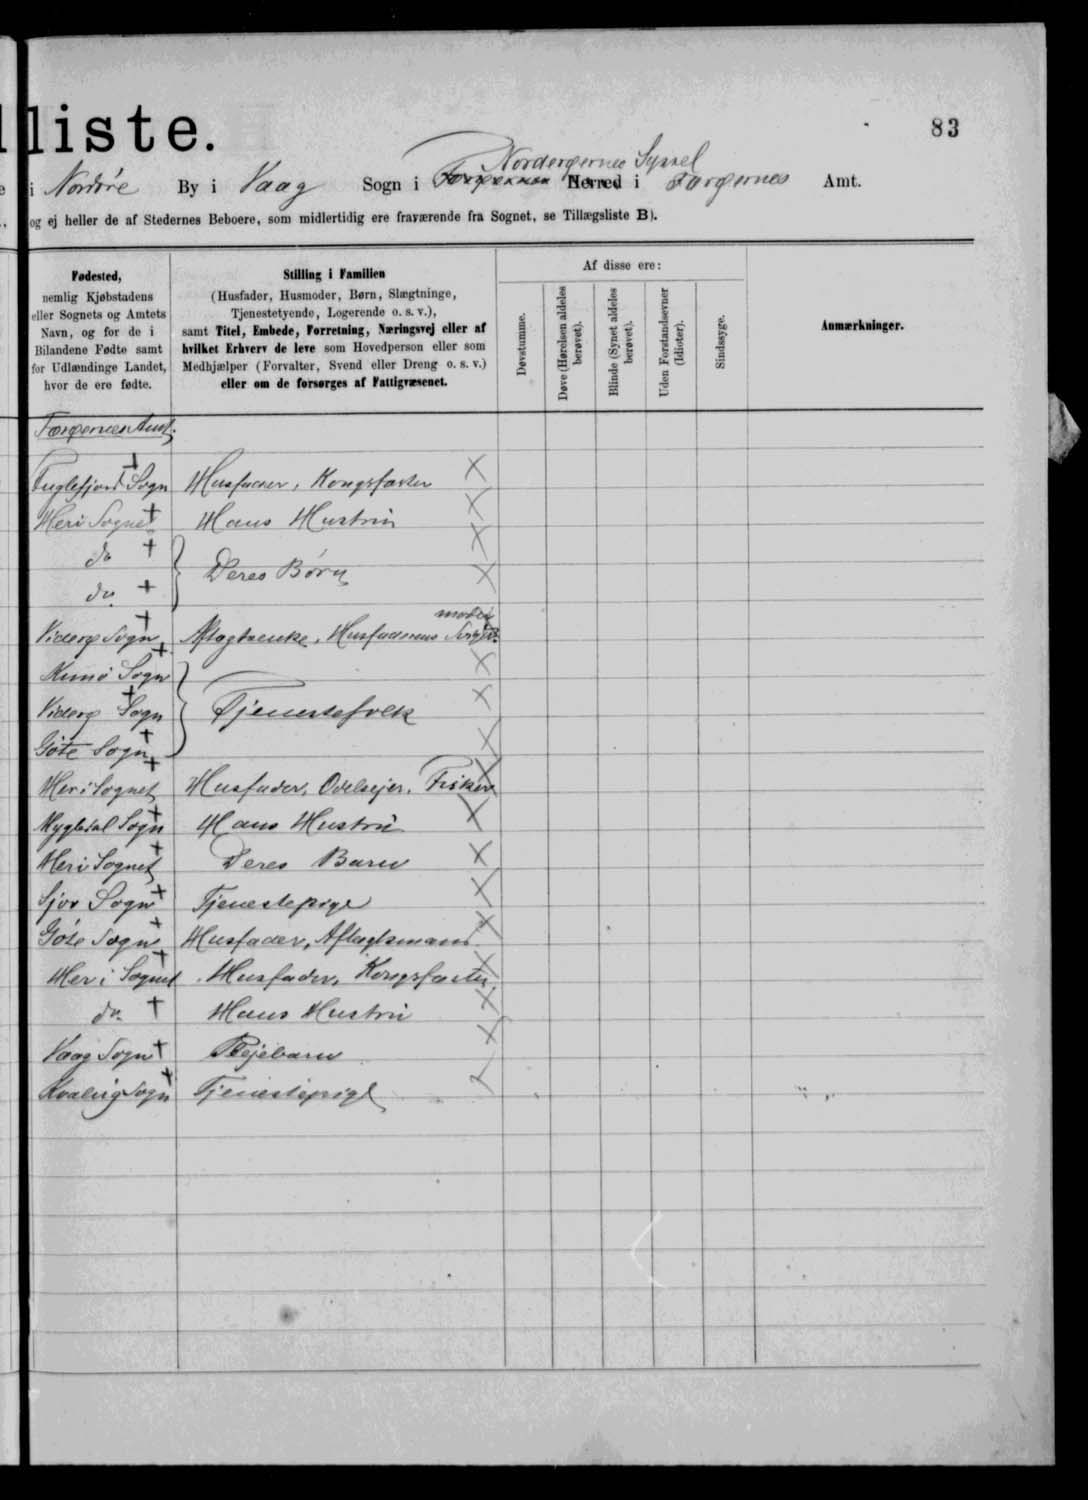 liste.
83
Norderøernes Syssel
i Nordöre By i Vaag Sogn i Herred i Færøernes Amt.
og ej heller de af Stedernes Beboere, som midlertidig ere fraværende fra Sognet, se Tillægsliste B).
Fødested,
nemlig Kjøbstadens
eller Sognets og Amtets
Navn, og for de i
Bilandene Fødte samt
for Udlændinge Landet,
hvor de ere fødte.
Stilling i Familien
(Husfader, Husmoder, Børn, Slægtninge,
Tjenestetyende, Logerende o. s. v.),
samt Titel, Embede, Forretning, Næringsvej eller af
hvilket Erhverv de leve som Hovedperson eller som
Medhjælper (Forvalter, Svend eller Dreng o. s. v.)
eller om de forsørges af Fattigvæsenet.
Af disse ere:
Døvstumme.
Døve (Hørelsen aldeles
berøvet).
Blinde (Synet aldeles
berøvet).
Uden Forstandsevner
(Idioter).
Sindssyge.
Anmærkninger.
Færøernes Amt.
Fuglefjord Sogn Husfader, Kongsfæster
Her i Sognet Hans Hustru
do
Deres Börn
do.
moder
Viderø Sogn Aftægtsenke, Husfaderens
Kunö Sogn
Viderø Sogn Tjenestefolk
Göte Sogn
Her i Sognet Husfader, Odelsejer, Fisker
Mygledal Sogn Hans Hustru
Her i Sognet Deres Barn
Sjov Sogn Tjenestepige
Göte Sogn Husfader, Aftægtsmand
Her i Sognet Husfader, Kongsfæster
do. Hans Hustru
Vaag Sogn Plejebarn
Kvalvig Sogn Tjenestepige